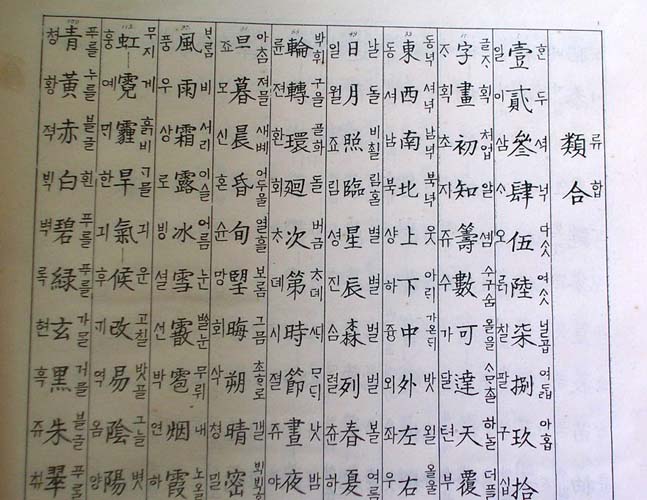 류합
類合
한 두 넉 다ᄉᆞᆺ 여ᄉᆞᆺ 닐곱 여ᄃᆞᆲ 아홉
壹貳參肆伍陸柒捌玖拾
일 이 삼 ᄉᆞ 오 칠 팔 구
글ᄌᆞ 획 처엄 알 하ᄂᆞᆯ
字畫初知籌數可達天覆
ᄌᆞ 획 초 지 쥬 수 가 달 텬 부
동녁 셔녁 남녁 북녁 웃 아ᄅᆡ 가온ᄃᆡ 밧 왼 올ᄒᆞᆯ
東西南北上下中外左右
동 셔 남 북 샹 하 즁 외 좌 우
날 ᄃᆞᆯ 비칠 림ᄒᆞᆯ 별 별 벌 봄 여름
日月照臨星辰森列春夏
일 월 죠 림 셩 진 ᄉᆞᆷ 렬 츈 하
박회 구을 골회 돌 버금 ᄎᆞ뎨 ᄢᅴ ᄆᆞᄃᆡ 낫 밤
輪轉環廻次第時節晝夜
륜 젼 환 회 ᄎᆞ 뎨 시 졀 쥬 야
아ᄎᆞᆷ 져믈 새벽 어두울 열흘 보롬 그믐 초ᄒᆞᄅᆞ 갤
旦暮晨昏旬朢晦朔晴密
죠 모 신 혼 슌 망 회 삭 쳥 밀
ᄇᆞ람 비 서리 이슬 어름 눈 무뤼 내 노을
風雨霜露冰雪霰雹烟霞
풍 우 상 로 빙 셜 션 박 연 하
무지게 흙비 긔운 고칠 밧골 그늘 볏
虹霓霾旱氣候改易陰陽
홍 예 ᄆᆡ 한 긔 후 ᄀᆡ 역 음 양
푸를 누를 블글 흰 푸를 푸를 가믈 거믈 블글 푸를
青黃赤白碧綠玄黑朱翠
쳥 황 젹 ᄇᆡᆨ 벽 록 현 흑 쥬 취